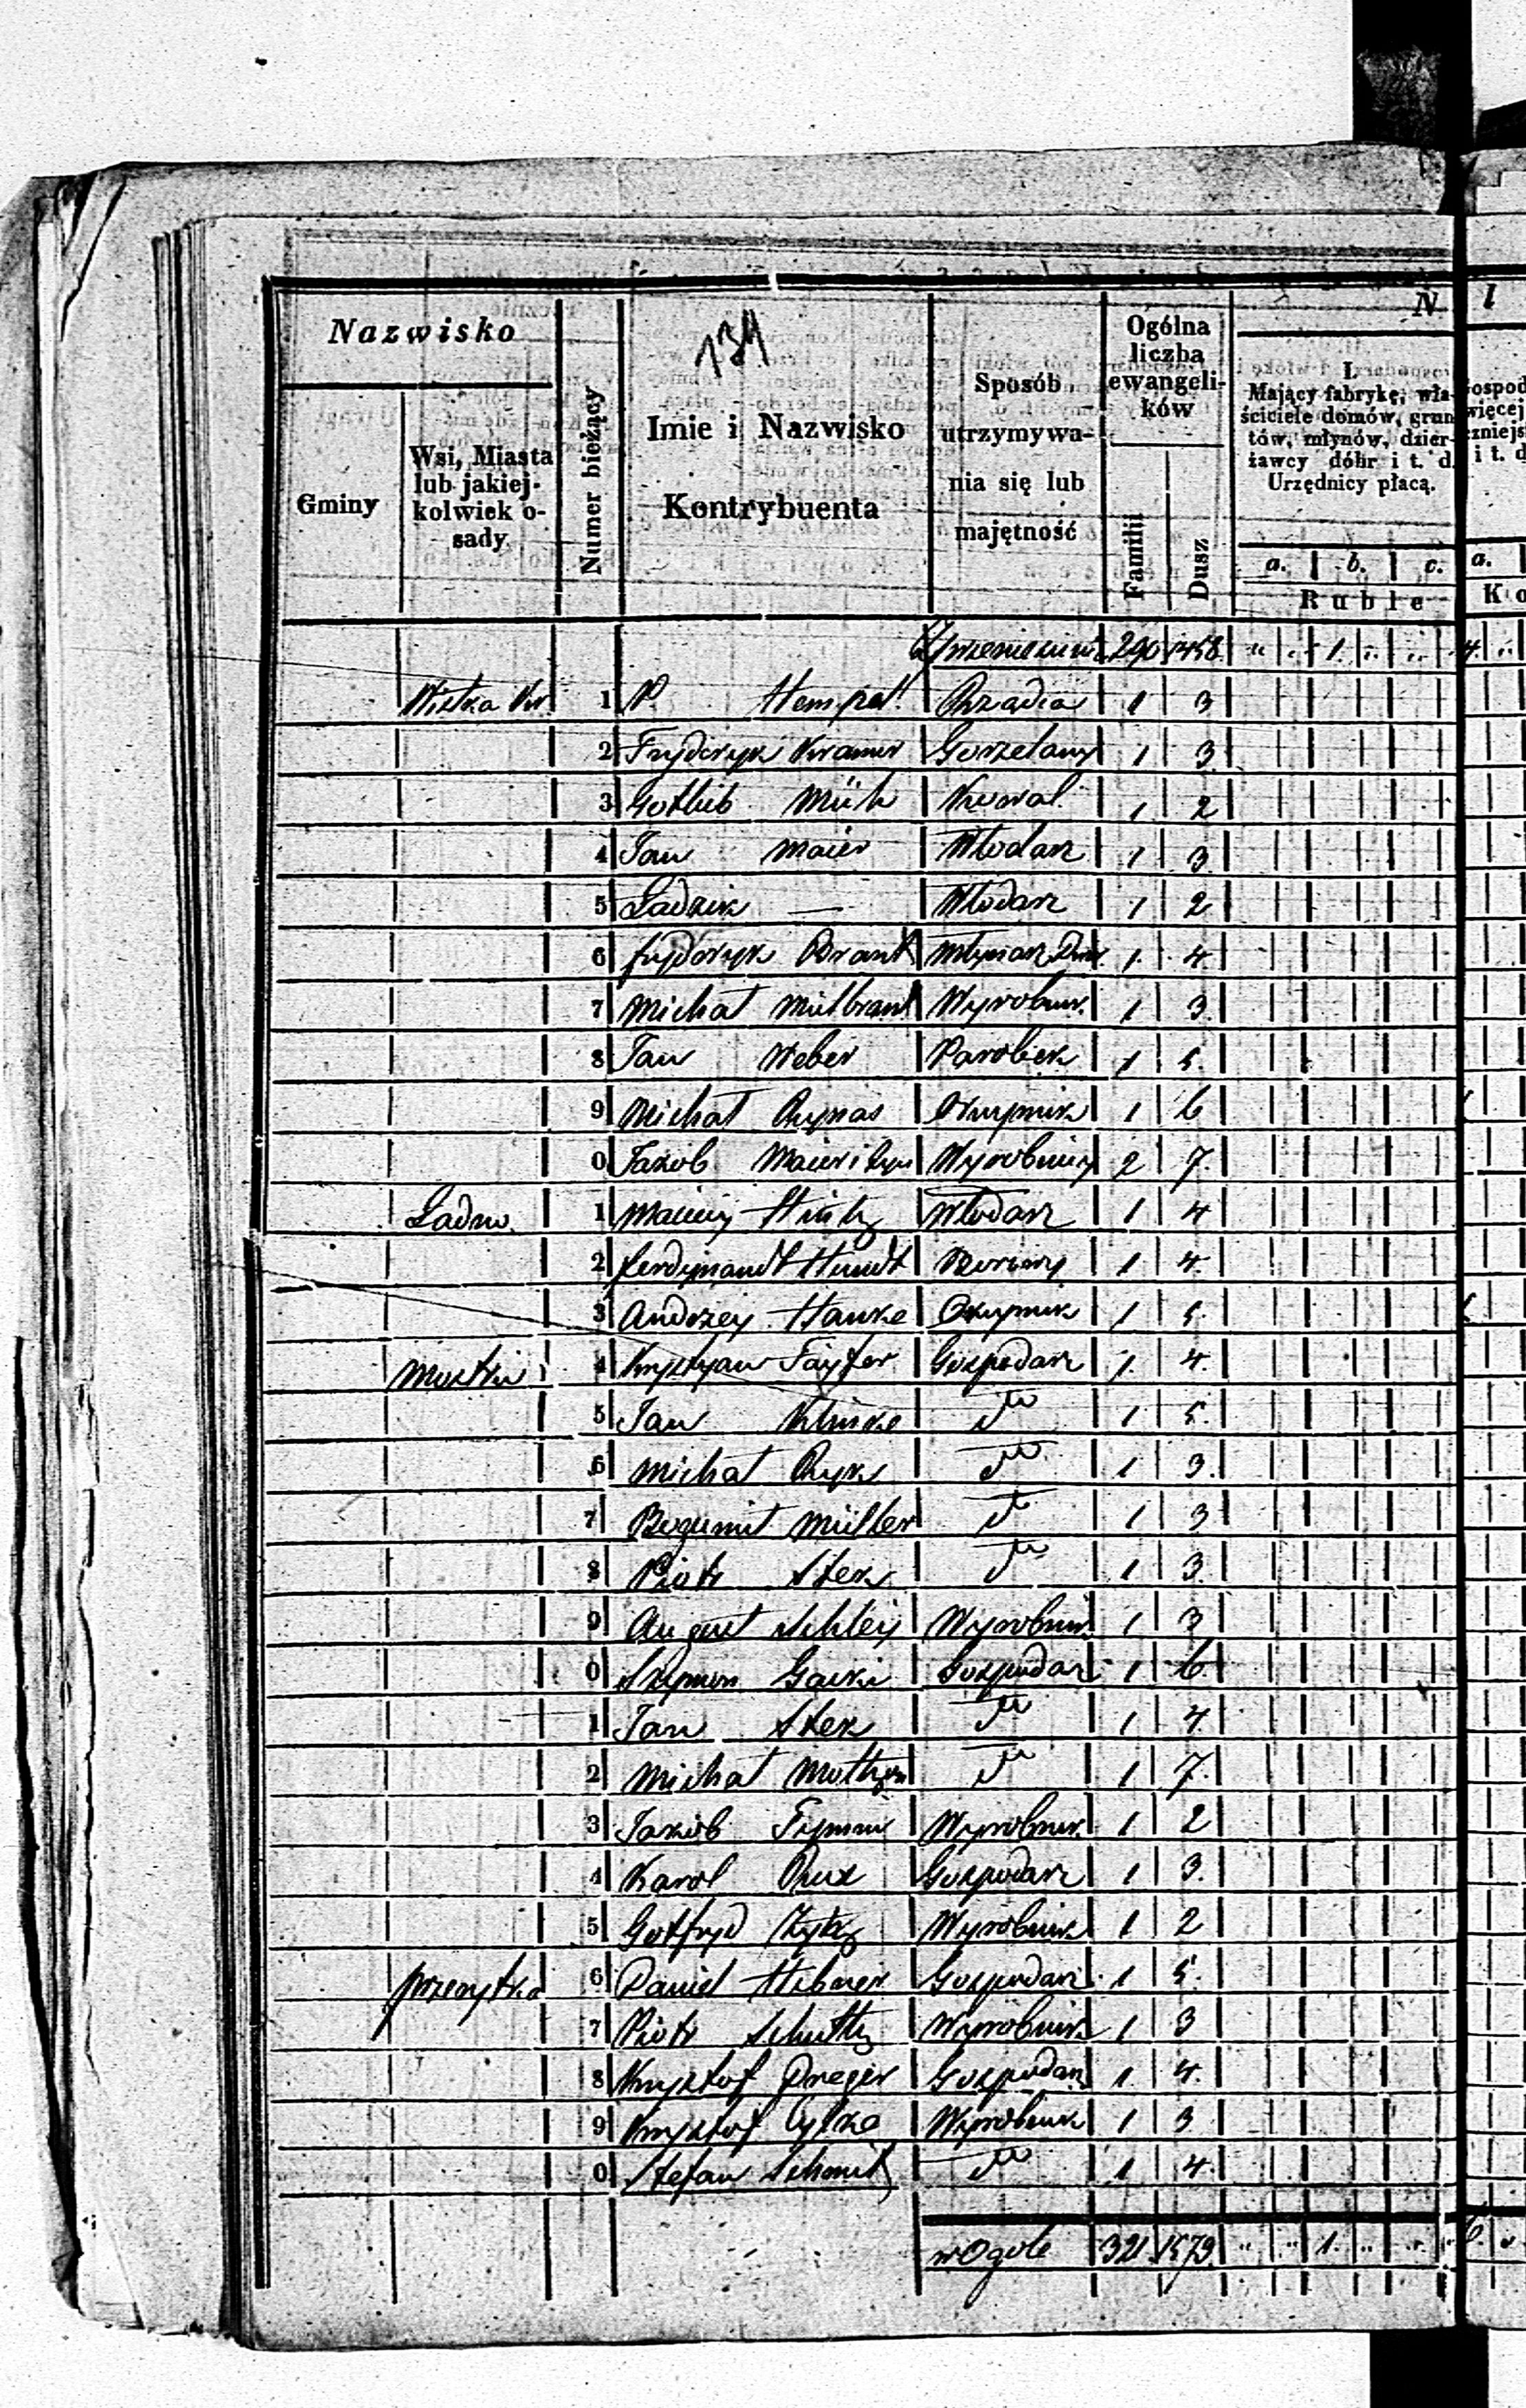 N
l
Nazwisko
Gminy
Wsi, Miasta
lub jakiej-
kolwiek o-
sady.
Numer bieżący
134
Imie i Nazwisko
Kontrybuenta
Sposób
utrzymywa-
nia się lub
majętność
Ogólna
liczba
ewangeli-
ków
Familii
Dusz
I.
Mający fabrykę, wła-
ściciele domów, grun
tów, młynów, dzier-
żawcy dóbr i t. d.
Urzędnicy płacą.
a. b. c. a.
Ruble Ko
Z przeniesienia 290 1458 " " 1 " " 4 "
1 Hempel Rządca 1 3
2 Fryderyk Kramer Gorzelany 1 3
3 Gotlieb Müh 1 2
4 Jan Maier Włodarz 1 3
5 Ladzik — Włodarz 1 2
6 fryderyk Brant Młynarz 1 4
7 Michał Miilbrant Wyrobnik 1 3
8 Jan Weber Parobek 1 5
9 Michał Rymas Okupnik 1 6
0 Jakób Maier i syn Wyrobnicy 2 7
1 Maciej Włodarz 1 4
2 ferdynandt Hundt 1 4
3 Andrzey Hanke Okupnik 1 5
Mostki 4 Krystyan Fayfer Gospodarz 1 4
5 Jan Klinke 1 5
6 Michał Ryk 1 3
7 Bogumił Müller 1 3
8 Piotr Stek 1 3
9 August Schley Wyrobnik 1 3
0 Szymon Gacki Gospodarz 1 6
1 Jan Stek 1 4
2 Michał 1 7
3 Jakób Wyrobnik 1 2
4 Karol Rux Gospodarz 1 3
5 Gotfryd Wyrobnik 1 2
przerytka 6 Daniel Hebner Gospodarz 1 5
7 Piotr Schultz Wyrobnik 1 3
8 Krysztof Dreger Gospodarz 1 4
9 Krysztof Cylke Wyrobnik 1 3
0 Stefan Schmit 1 4
w Ogole 321 1579 " " 1 " " " 6